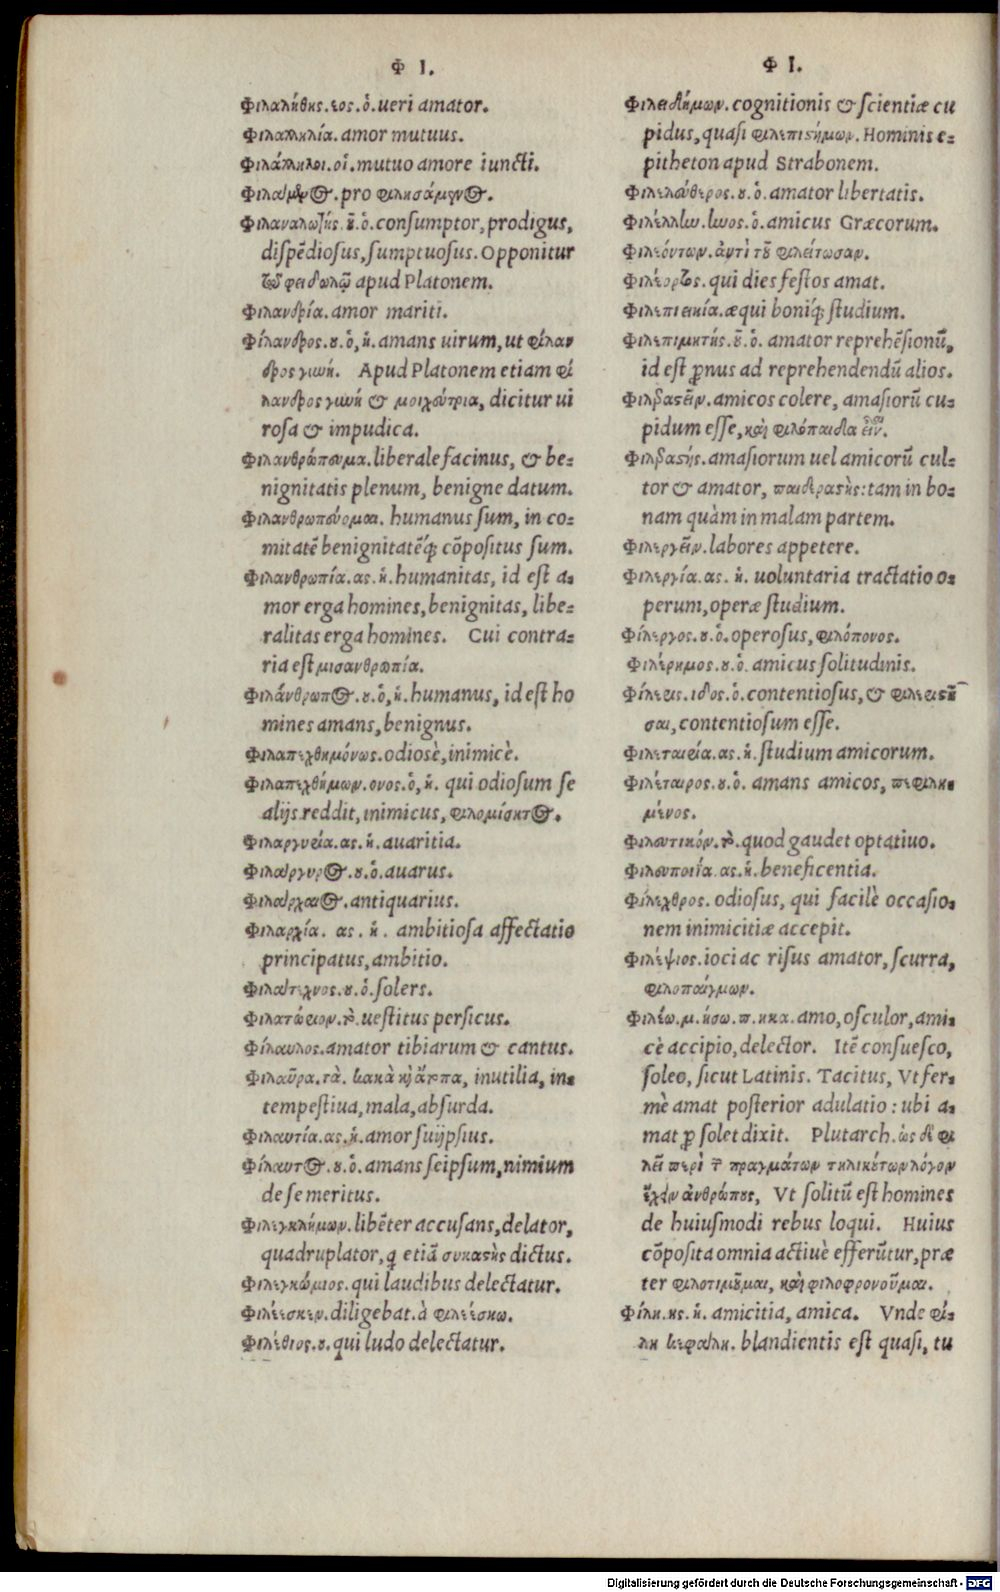 Φ Ι.
Φιλαλήθης.εος.ὁ.ueri amator.
Φιλαλληλία.amor mutuus.
Φιλάλληλοι.οἱ.mutuo amore iuncti.
Φιλάμενος.pro φιλησάμενος.
Φιλαναλωτής.οῦ.ὁ.conſumptor,prodigus,
diſpẽdioſus,ſumptuoſus.Opponitur
τῷ φειδωλῷ apud Platonem.
Φιλανδρία.amor mariti.
Φίλανδρος.ου.ὁ,ἡ.amans uirum,ut φίλαν
δρος γυνή. Apud Platonem etiam φί
λανδρος γυνή & μοιχεύτρια, dicitur ui
roſa & impudica.
Φιλανθρώπευμα.liberale facinus, & be-
nignitatis plenum, benigne datum.
Φιλανθρωπεύομαι. humanus ſum, in co-
mitatẽ benignitatẽq́; cõpoſitus ſum.
Φιλανθρωπία.ας.ἡ.humanitas, id eſt a-
mor erga homines,benignitas, libe-
ralitas erga homines. Cui contra-
ria eſt μισανθρωπία.
Φιλάνθρωπος.ου.ὁ,ἡ.humanus, id eſt ho
mines amans,benignus.
Φιλαπεχθημόνως.odiosè,inimicè.
Φιλαπεχθήμων.ονος.ὁ,ἡ. qui odioſum ſe
alijs reddit, inimicus, φιλομίσητος.
Φιλαργυρία.ας.ἡ.auaritia.
Φιλάργυρος.ου.ὁ.auarus.
Φιλάρχαιος.antiquarius.
Φιλαρχία. ας. ἡ. ambitioſa affectatio
principatus,ambitio.
Φιλάτεχνος.ου.ὁ.ſolers.
Φιλατώριον.τὸ.ueſtitus perſicus.
Φίλαυλος.amator tibiarum & cantus.
Φιλαῦρα.τὰ. κακὰ καὶ ἄτοπα, inutilia, in-
tempeſtiua,mala,abſurda.
Φιλαυτία.ας.ἡ.amor ſuijpſius.
Φίλαυτος.ου.ὁ.amans ſeipſum,nimium
de ſe meritus.
Φιλεγκλήμων.libẽter accuſans,delator,
quadruplator, q̃ etiã συκαστὴς dictus.
Φιλεγκώμιος.qui laudibus delectatur.
Φιλέεσκεν.diligebat.à φιλεέσκω.
Φιλέθιος.ου.qui ludo delectatur.
Φ Ι.
Φιλειδήμων.cognitionis & ſcientiæ cu
pidus,quaſi φιλεπιστήμων.Hominis e-
pitheton apud Strabonem.
Φιλελεύθερος.ου.ὁ.amator libertatis.
Φιλέλλην.ηνος.ὁ.amicus Græcorum.
Φιλεόντων.ἀντὶ τοῦ φιλείτωσαν.
Φιλέορτος.qui dies feſtos amat.
Φιλεπιεικία.æqui boniq́; ſtudium.
Φιλεπιμητής.οῦ.ὁ. amator reprehẽſionũ,
id eſt p̃nus ad reprehendendũ alios.
Φιλεραστεῖν.amicos colere, amaſiorũ cu-
pidum eſſe,καὶ φιλόπαιδα εἶναι.
Φιλεραστής.amaſiorum uel amicorũ cul-
tor & amator, παιδεραστὴς:tam in bo-
nam quàm in malam partem.
Φιλεργεῖν.labores appetere.
Φιλεργία.ας. ἡ. uoluntaria tractatio o-
perum,operæ ſtudium.
Φίλεργος.ου.ὁ.operoſus,φιλόπονος.
Φιλέρημος.ου.ὁ.amicus ſolitudinis.
Φίλερις.ιδος.ὁ.contentioſus,& φιλεριστῆ
σαι,contentioſum eſſe.
Φιλεταιρία.ας.ἡ.ſtudium amicorum.
Φιλέταιρος.ου.ὁ. amans amicos, πεφιλη-
μένος.
Φιλευτικόν.τὸ.quod gaudet optatiuo.
Φιλευποιΐα.ας.ἡ.beneficentia.
Φίλεχθρος. odioſus, qui facilè occaſio-
nem inimicitiæ accepit.
Φιλέψιος.ioci ac riſus amator,ſcurra,
φιλοπαίγμων.
Φιλέω.μ.ήσω.π.ηκα. amo,oſculor,ami-
cè accipio,delector. Itẽ conſueſco,
ſoleo, ſicut Latinis. Tacitus, Vt fer-
mè amat poſterior adulatio : ubi a-
mat p̱ ſolet dixit. Plutarch.ὡς δὲ φι
λεῖ περὶ τῶν πραγμάτων τηλικούτων λόγον
ἔχειν ἀνθρώπους, Vt ſolitũ eſt homines
de huiuſmodi rebus loqui. Huius
cõpoſita omnia actiuè efferũtur,præ
ter φιλοτιμοῦμαι, καὶ φιλοφρονοῦμαι.
Φίλη.ης.ἡ. amicitia, amica. Vnde φί-
λη κεφαλη. blandientis eſt quaſi, tu
Digitalisierung gefördert durch die Deutsche Forschungsgemeinschaft - DFG